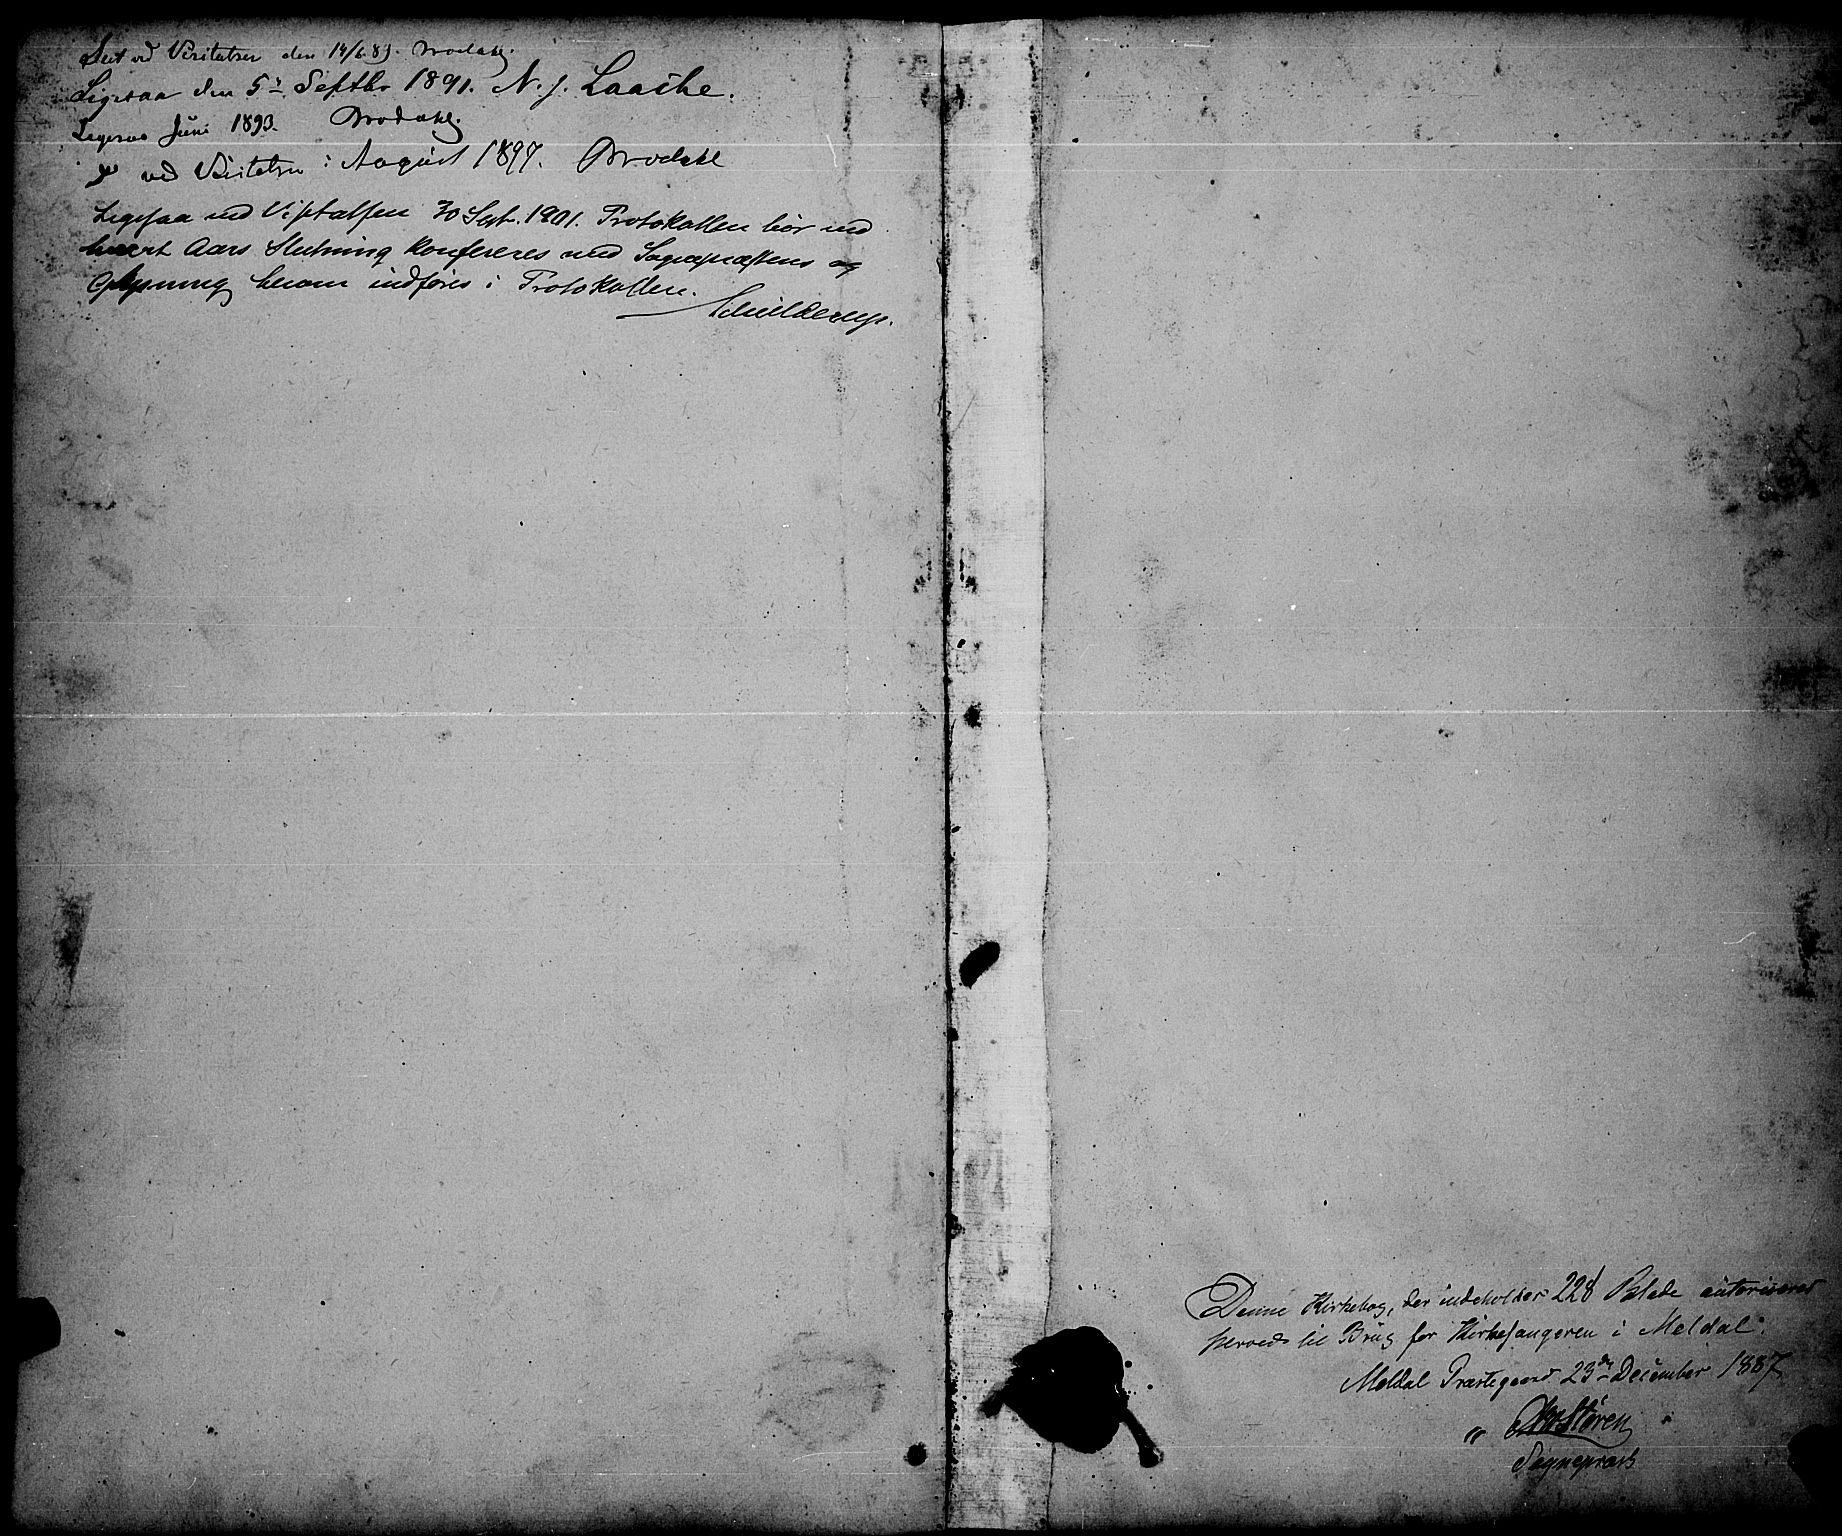 Seet ved Visitatsen den 14/6 89. Brodahl.
Ligesaa den 5te Septbr 1891. N. J. Laache.
Ligesaa Juni 1893. Brodahl.
ved Visitatsen i August 1897. Brodahl
Ligesaa ved Visitatsen 30 Sept. 1901. Protokollen bør ved
hvert Aars Slutning konfereres med Sognepræstens og
herom indføres i Protokollen.
Schielderup.
Denne Kirkebog, der indeholder 228 Blade autoriseres
herved til Brug for Kirkesangeren i Meldal.
Meldal Præstegaard 23de December 1887
Støren
Sognepræst